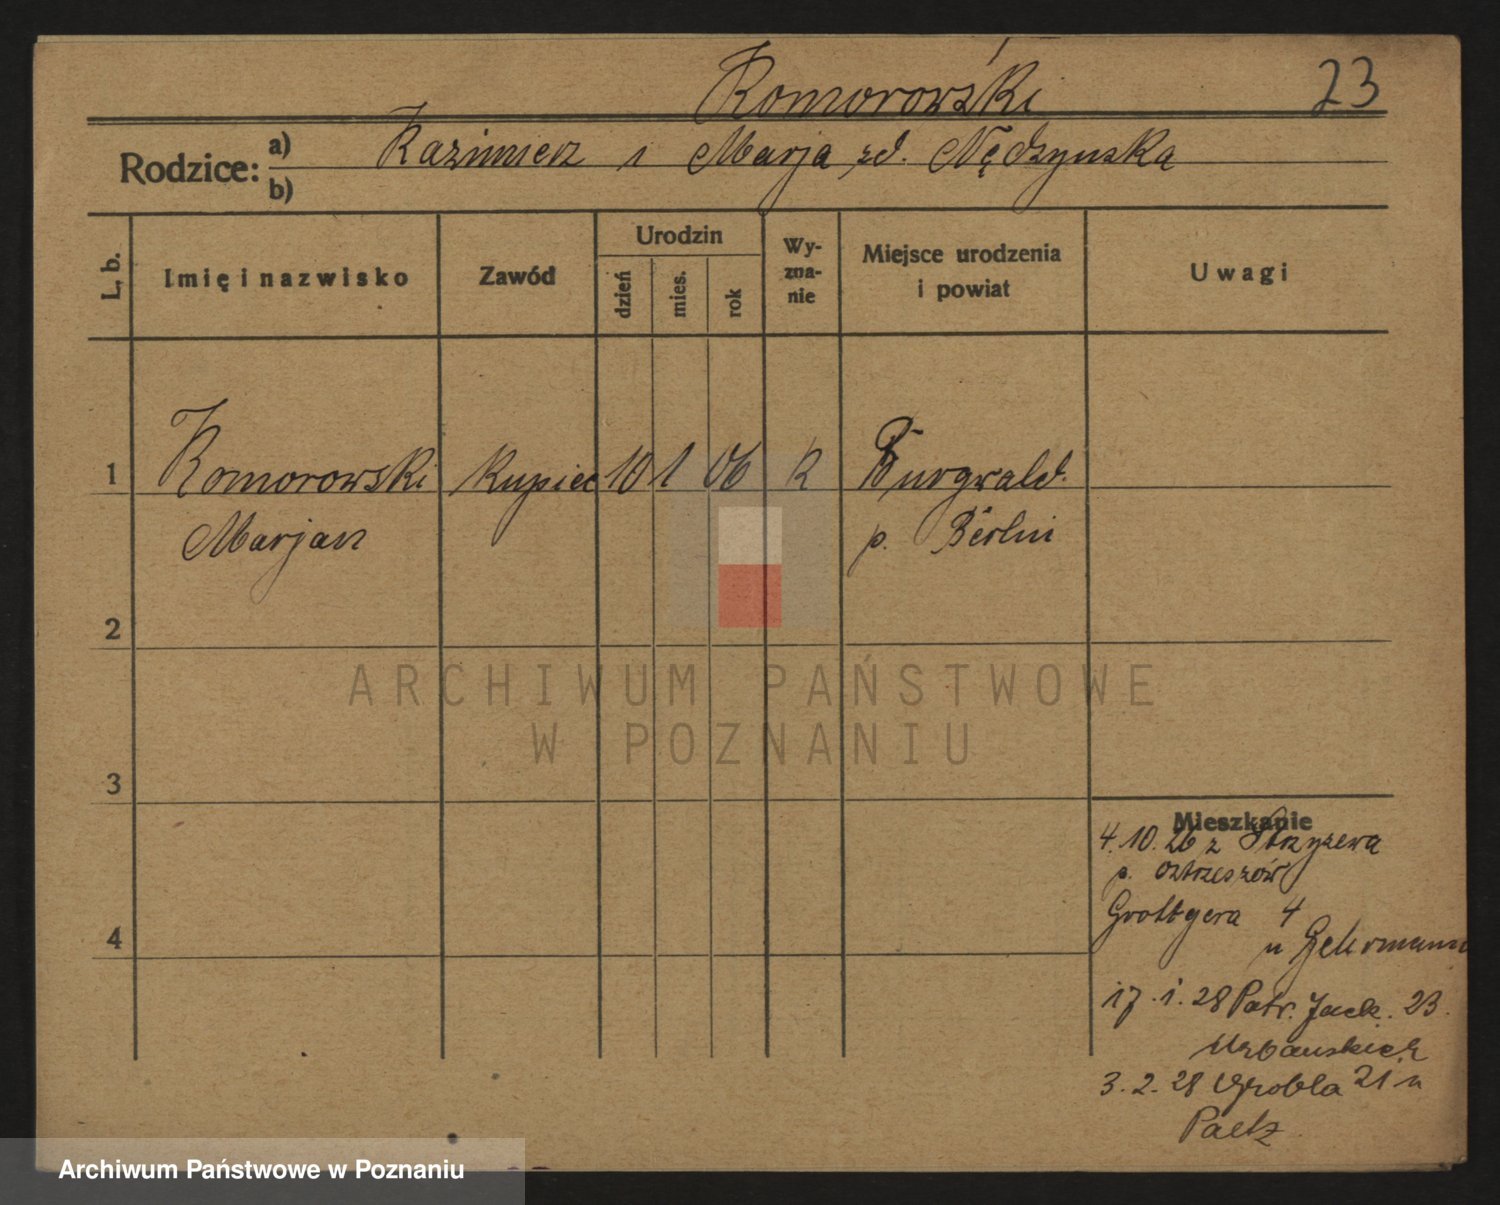 Komorowski 23
Rodzice: a) Kazimierz i Marja zd. Nędzyńska
b)
L. b. Imię i nazwisko Zawód Urodzin dzień mies. rok Wy-zna-nie Miejsce urodzenia i powiat Uwagi
1 Komorowski kupiec 10 1 06 k Burgwald
Marjan p. Berlin
2
3
Mieszkanie
4.10.26 z Strzyżewa
p. Ostrzeszów
Grottgera 4
4
u Gehrmann
17.1.28 Patr. Jack. 23.
Urbanskich
3.2.28 Grobla 21 u
Paetz
ARCHIWUM PAŃSTWOWE
W POZNANIU
Archiwum Państwowe w Poznaniu